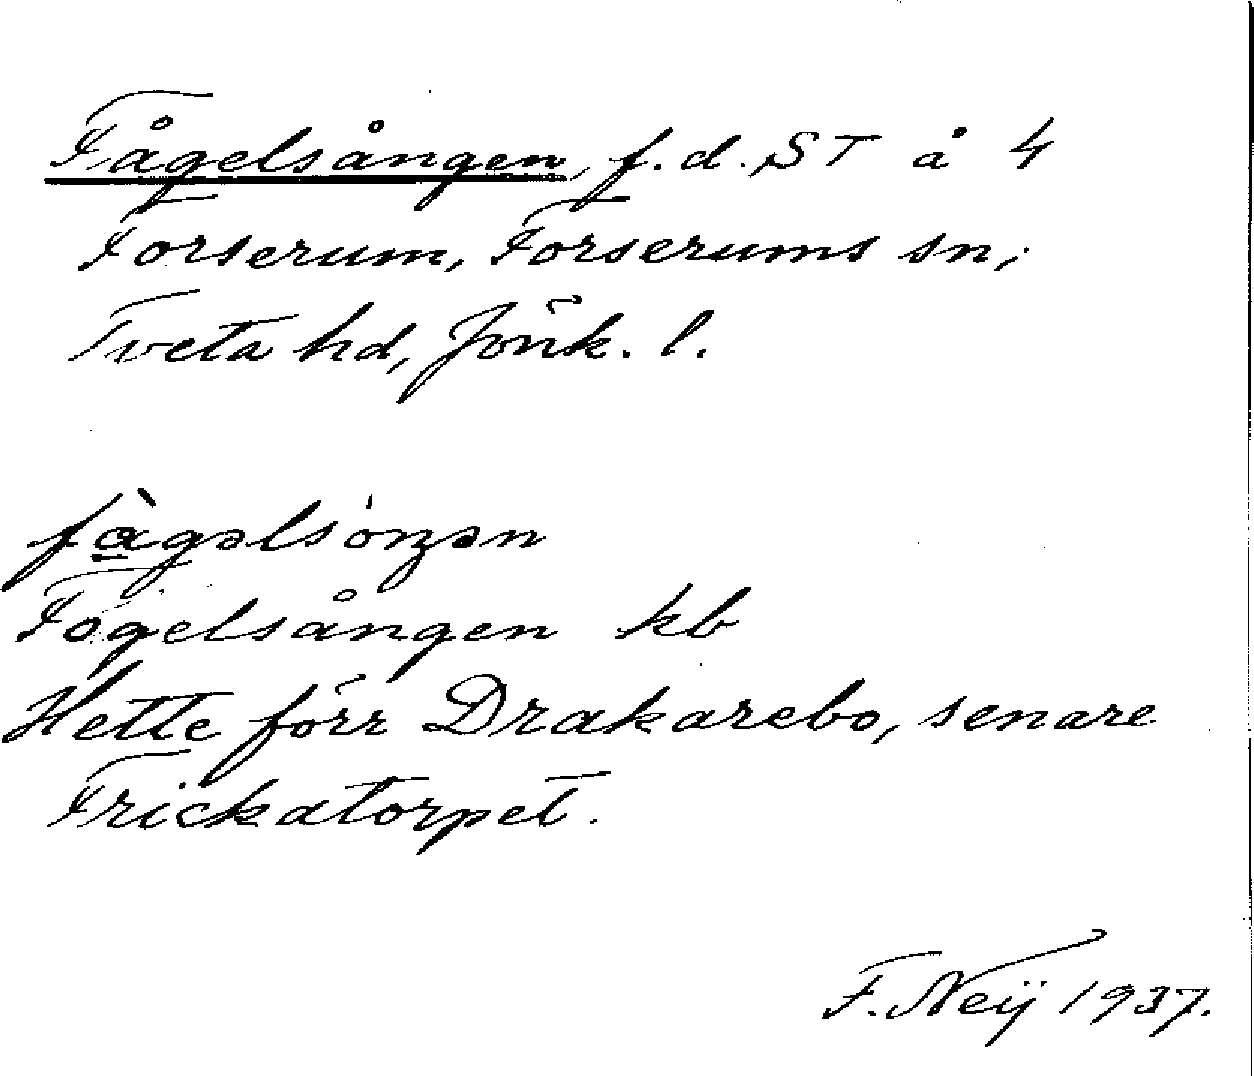 Fågelsången, f.d. ST å 4
Forserum, Forserums sn,
Tveta hd, Jönk. l.
fàgəlsʹoŋən
Fogelsången kb
Hette förr Drakarebo, senare
Frickatorpet.
F. Neÿ 1937.